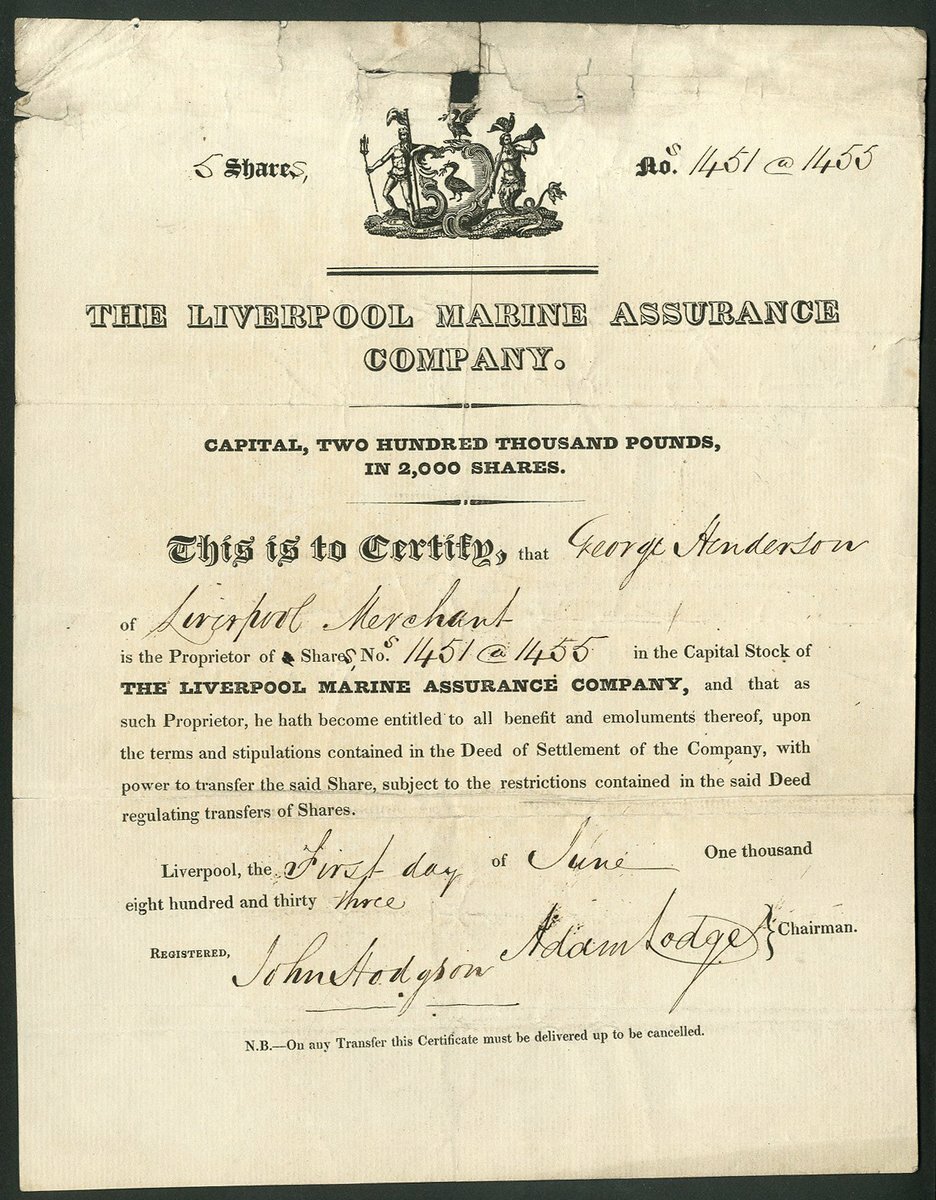 5 Shares,
Nos. 1451 @ 1455
THE LIVERPOOL MARINE ASSURANCE
COMPANY.
CAPITAL, TWO HUNDRED THOUSAND POUNDS,
IN 2,000 SHARES.
This is to Certify, that George Henderson
of Liverpool Merchant
is the Proprietor of Shares, Nos. 1451 @ 1455 in the Capital Stock of
THE LIVERPOOL MARINE ASSURANCE COMPANY, and that as
such Proprietor, he hath become entitled to all benefit and emoluments thereof, upon
the terms and stipulations contained in the Deed of Settlement of the Company, with
power to transfer the said Share, subject to the restrictions contained in the said Deed
regulating transfers of Shares.
Liverpool, the First day of June One thousand
eight hundred and thirty three
REGISTERED, John Hodgson Adam Lodge } Chairman.
N.B.—On any Transfer this Certificate must be delivered up to be cancelled.